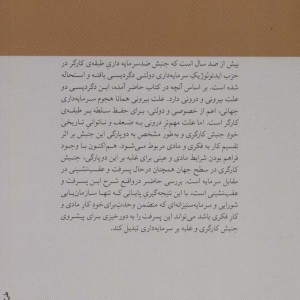 بیش از صد سال است که جنبش ضدسرمایه‌داری طبقه‌ی کارگر در
حزب ایدئولوژیک سرمایه‌داری دولتی دگردیسی یافته و استحاله
شده است. بر اساس آنچه در کتاب حاضر آمده، این دگردیسی دو
علت بیرونی و درونی دارد. علت بیرونی همانا هجوم سرمایه‌داری
جهانی، اعم از خصوصی و دولتی، برای حفظ سلطه بر طبقه‌ی
کارگر است. اما علت مهم‌تر درونی به ضعف و ناتوانی تاریخی
خود جنبش کارگری و به‌طور مشخص به دوپارگی این جنبش بر اثر
تقسیم کار به فکری و مادی مربوط می‌شود. هم‌اکنون با وجود
فراهم بودن شرایط مادی و عینی برای غلبه بر این دوپارگی، جنبش
کارگری در سطح جهان همچنان در حال پسرفت و عقب‌نشینی در
مقابل سرمایه است. بررسی حاضر درواقع شرح این پسرفت و
عقب‌نشینی است، با این نتیجه‌گیری پایانی که تنها سازمان‌یابی
شورایی و سرمایه‌ستیزانه‌ای که متضمن وحدت برای خود کار مادی و
کار فکری باشد می‌تواند این پسرفت را به دورخیزی برای پیشروی
جنبش کارگری و غلبه بر سرمایه‌داری تبدیل کند.